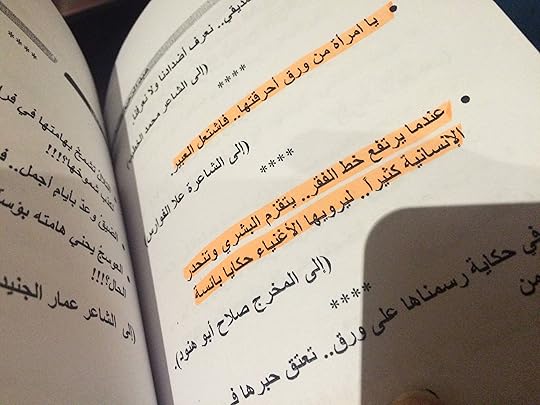 صديقي.. تعرف أضدادنا ولا نعرف
(إلى الشاعر محمد
****
• يا امرأة من ورق أحرقتها.. فاشتعل العبير.
(إلى الشاعرة علا الفوارس)
****
• عندما يرتفع خط الفقر.. يتقزم البشري وتنحدر
الإنسانية كثيراً.. ليرويها الأغنياء حكايا بائسة
(إلى المخرج صلاح أبو هنود).
****
في حكاية رسمناها على ورق.. تعتق حبرها
من
****
تشمخ بهامتها في
شموخها؟!!!
بأيام أجمل..
العوسج يحني هامته
الحال؟!!!
(إلى الشاعر عمار الجنيدي